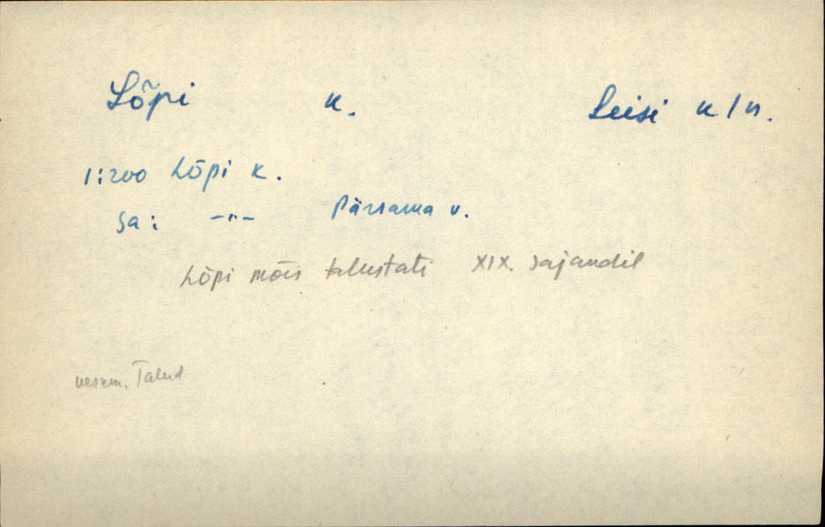 Lõpi k. Leisi k/n.
1:200 Lõpi k.
Sa: -"- Pärsama v.
Lõpi mõis talustati XIX. sajandil
Talud